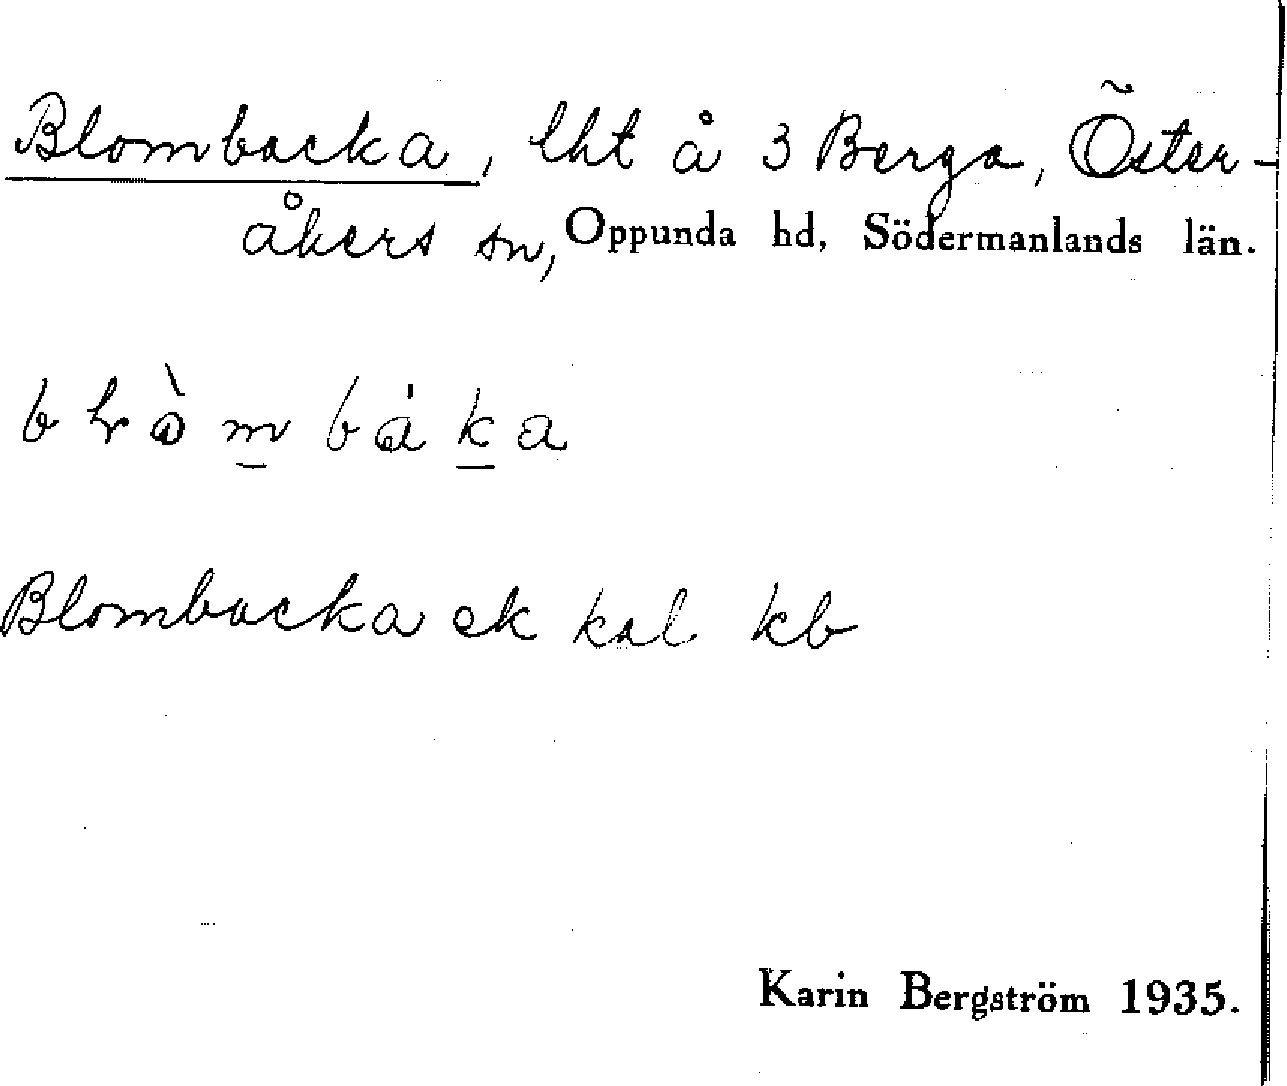 Blombacka, lht å 3 Berga, Öster-
åkers sn, Oppunda hd, Södermanlands län.
Blombacka ek kal kb
Karin Bergström 1935.